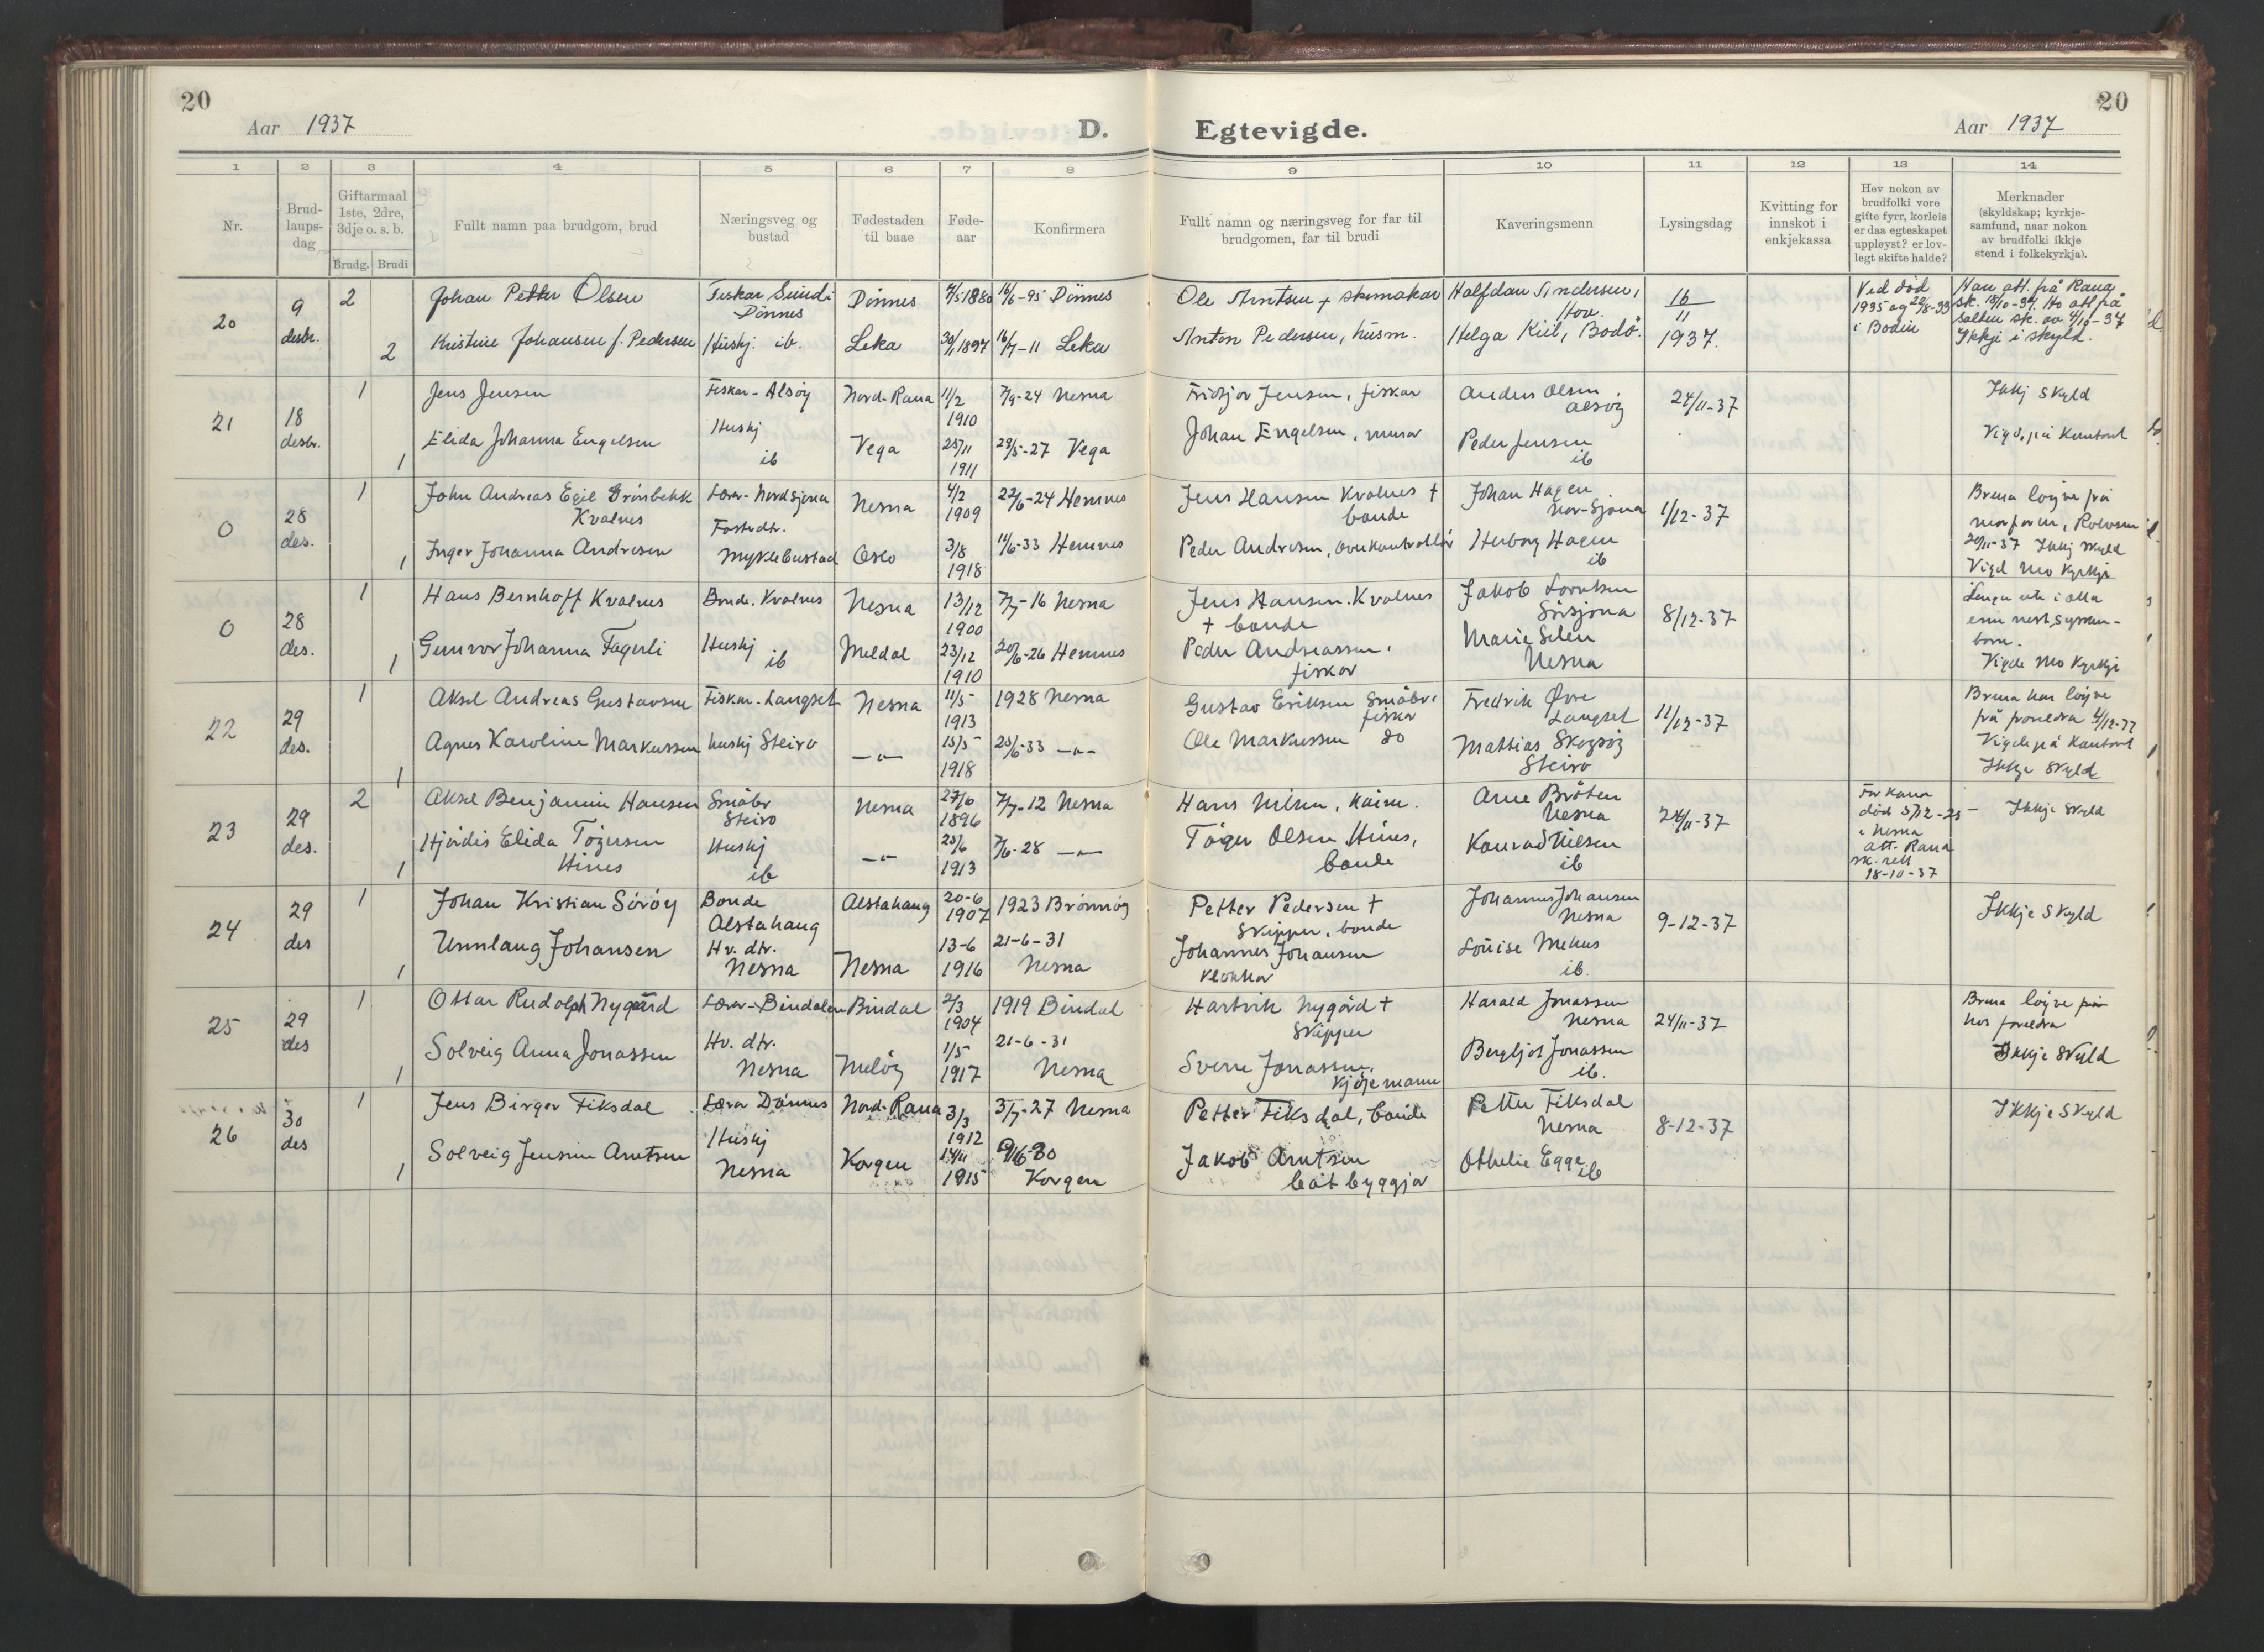 20
Aar 1937
D.
Egtevigde.
20
Aar 1937
1 2 3 4 5 6 7 8 9 10 11 12 13 14
Nr.
Brud-
laups-
dag
Giftarmaal
1ste, 2dre,
3dje o. s. b.
Brudg. Brudi
Fullt namn paa brudgom, brud
Næringsveg og
bustad
Fødestaden
til baae
Føde-
aar
Konfirmera
Fullt namn og næringsveg for far til
brudgomen, far til brudi
Kaveringsmenn
Lysingsdag
Kvitting for
innskot i
enkjekassa
Hev nokon av
brudfolki vore
gifte fyrr, korleis
er daa egteskapet
uppløyst? er lov-
legt skifte halde?
Merknader
(skyldskap; kyrkje-
samfund, naar nokon
av brudfolki ikkje
stend i folkekyrkja).
20
9
desbr.
2
Johan Petter Olsen
Fiskar Sund i
Dönnes
Dönnes
4/5 1880
16/6-95 Dönnes
Ole Arntsen + skomakar
Halfdan Andersen,
Hov.
16
11
1937.
Ved död
1935 og 22/8-33
i Bodin
Han att. frå Rana
sk. 18/10-37. Ho att frå
Salten sk. av 4/10-37
Ikkje i skyld.
2
Kristine Johansen f. Pedersen
Huskj. ib.
Leka
30/1 1897
16/7-11 Leka
Anton Pedersen, husm.
Helga Kiil, Bodö.
21
18
desbr.
1
Jens Jensen
Fiskar - Alsöy
Nord-Rana
11/2
1910
7/9-24 Nesna
Fridtjov Jensen, fiskar
Anders Olsen
Alsöy
24/11-37
Ikkj skyld
1
Elida Johanna Engelsen
Huskj
ib
Vega
25/11
1911
29/5-27 Vega
Johan Engelsen, murar
Peder Jensen
ib
Vigd. på Kontoret
0
28
des.
1
John Andreas Egil Grönbekk
Kvalnes
Lærar - Nordsjona
Nesna
4/2
1909
22/6-24 Hemnes
Jens Hansen Kvalnes +
bonde
Johan Hagen
Nor-Sjona
1/12-37
Brura löyve frå
morfaren, Rolvsen
20/11-37 Ikkj skyld
Vigd Mo Kyrkje
1
Inger Johanna Andresen
Fosterdtr.
Myklebustad
Oslo
3/8
1918
11/6-33 Hemnes
Peder Andresen, overkontrollör
Herborg Hagen
ib
0
28
des.
1
Hans Bernhoff Kvalnes
Bonde. Kvalnes
Nesna
13/12
1900
7/7-16 Nesna
Jens Hansen Kvalnes
+ bonde
Jakob Lorntsen
Sörsjona
8/12-37
enn nest Sysken-
born.
Vigde Mo Kyrkje
1
Gunvor Johanna Fagerli
Huskj
ib
Meldal
23/12
1910
20/6-26 Hemnes
Peder Andreassen,
fiskar
Marie Selen
Nesna
22
29
des.
1
Aksel Andreas Gustavsen
Fiskar. Langset
Nesna
11/5
1913
1928 Nesna
Gustav Eriksen Småbr.
fiskar
Fredrik Øvre
Langset
11/12-37
Brura har löyve
frå foreldra 4/12-37
Vigde på Kontoret
Ikkje Skyld
1
Agnes Karoline Markussen
huskj Steiro
—"—
15/5
1918
25/6-33 —"—
Ole Markussen do
Mattias Skogsöy
Steiro
23
29
des.
2
Aksel Benjamin Hansen
Småbr
Steiro
Nesna
27/6
1896
7/7-12 Nesna
Hans Nilsen, kårm.
Arne Bråten
Nesna
24/11-37
För kona
död 5/12-25
i Nesna
att. Rana
sk. rett
18-10-37
— Ikkje Skyld
1
Hjördis Elida Tögersen
Hines
Huskj
ib
—"—
25/6
1913
7/6-28 —"—
Töger Olsen Hines,
bonde
Konrad Nilsen
ib
24
29
des
1
Johan Kristian Söröy
Bonde
Alstahaug
Alstahaug
20-6
1907
1923 Brönnöy
Petter Pedersen +
Skipper, bonde
Johannes Johansen
Nesna
9-12-37
Ikkje Skyld
1
Unnlaug Johansen
Hv. dtr.
Nesna
Nesna
13-6
1916
21-6-31
Nesna
Johannes Johansen
klokkar
Louise Mehus
ib.
25
29
des
1
Ottar Rudolph Nygård
Lærar - Bindalen
Bindal
2/3
1904
1919 Bindal
Hartvik Nygård +
Skipper
Harald Jonassen
Nesna
24/11-37
Brura löyve frå
hos foreldra
Ikkje Skyld
1
Solveig Anna Jonassen
Hv. dtr.
Nesna
Melöy
1/5
1917
21-6-31
Nesna
Sverre Jonassen,
kjöpmann
Bergljot Jonassen
ib.
26
30
des
1
Jens Birger Fiksdal
Lærar Dönnes
Nord-Rana
3/3
1912
3/7-27 Nesna
Petter Fiksdal, bonde
Petter Fiksdal
Nesna
8-12-37
Ikkje Skyld
1
Solveig Jensine Arntsen
Huskj
Nesna
Korgen
14/11
1915
Korgen
Jakob Arntsen
båtbyggjar
Othelie Egge
ib